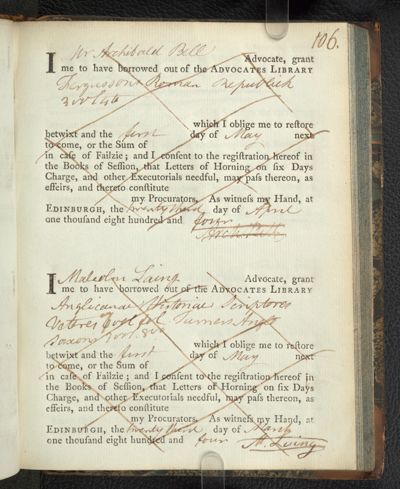 106.
I Mr Archibald Bell Advocate, grant
me to have borrowed out of the ADVOCATES LIBRARY
Fergussons Roman Republick
3 vol 4to
which I oblige me to reſtore
betwixt and the first day of May next
to come, or the Sum of
in caſe of Failzie; and I conſent to the regiſtration hereof in
the Books of Seſſion, that Letters of Horning on ſix Days
Charge, and other Executorials needful, may paſs thereon, as
effeirs, and thereto conſtitute
my Procurators. As witneſs my Hand, at
EDINBURGH, the twenty third day of April
one thouſand eight hundred and four
Arch Bell
I Malcolm Laing Advocate, grant
me to have borrowed out of the ADVOCATES LIBRARY
Anglicanae Historiae Scriptores
Veteres Turners Anglo
Saxons
which I oblige me to reſtore
betwixt and the first day of May next
to come, or the Sum of
in caſe of Failzie; and I conſent to the regiſtration hereof in
the Books of Seſſion, that Letters of Horning on ſix Days
Charge, and other Executorials needful, may paſs thereon, as
effeirs, and thereto conſtitute
my Procurators. As witneſs my Hand, at
EDINBURGH, the twenty third day of
one thouſand eight hundred and four M. Laing